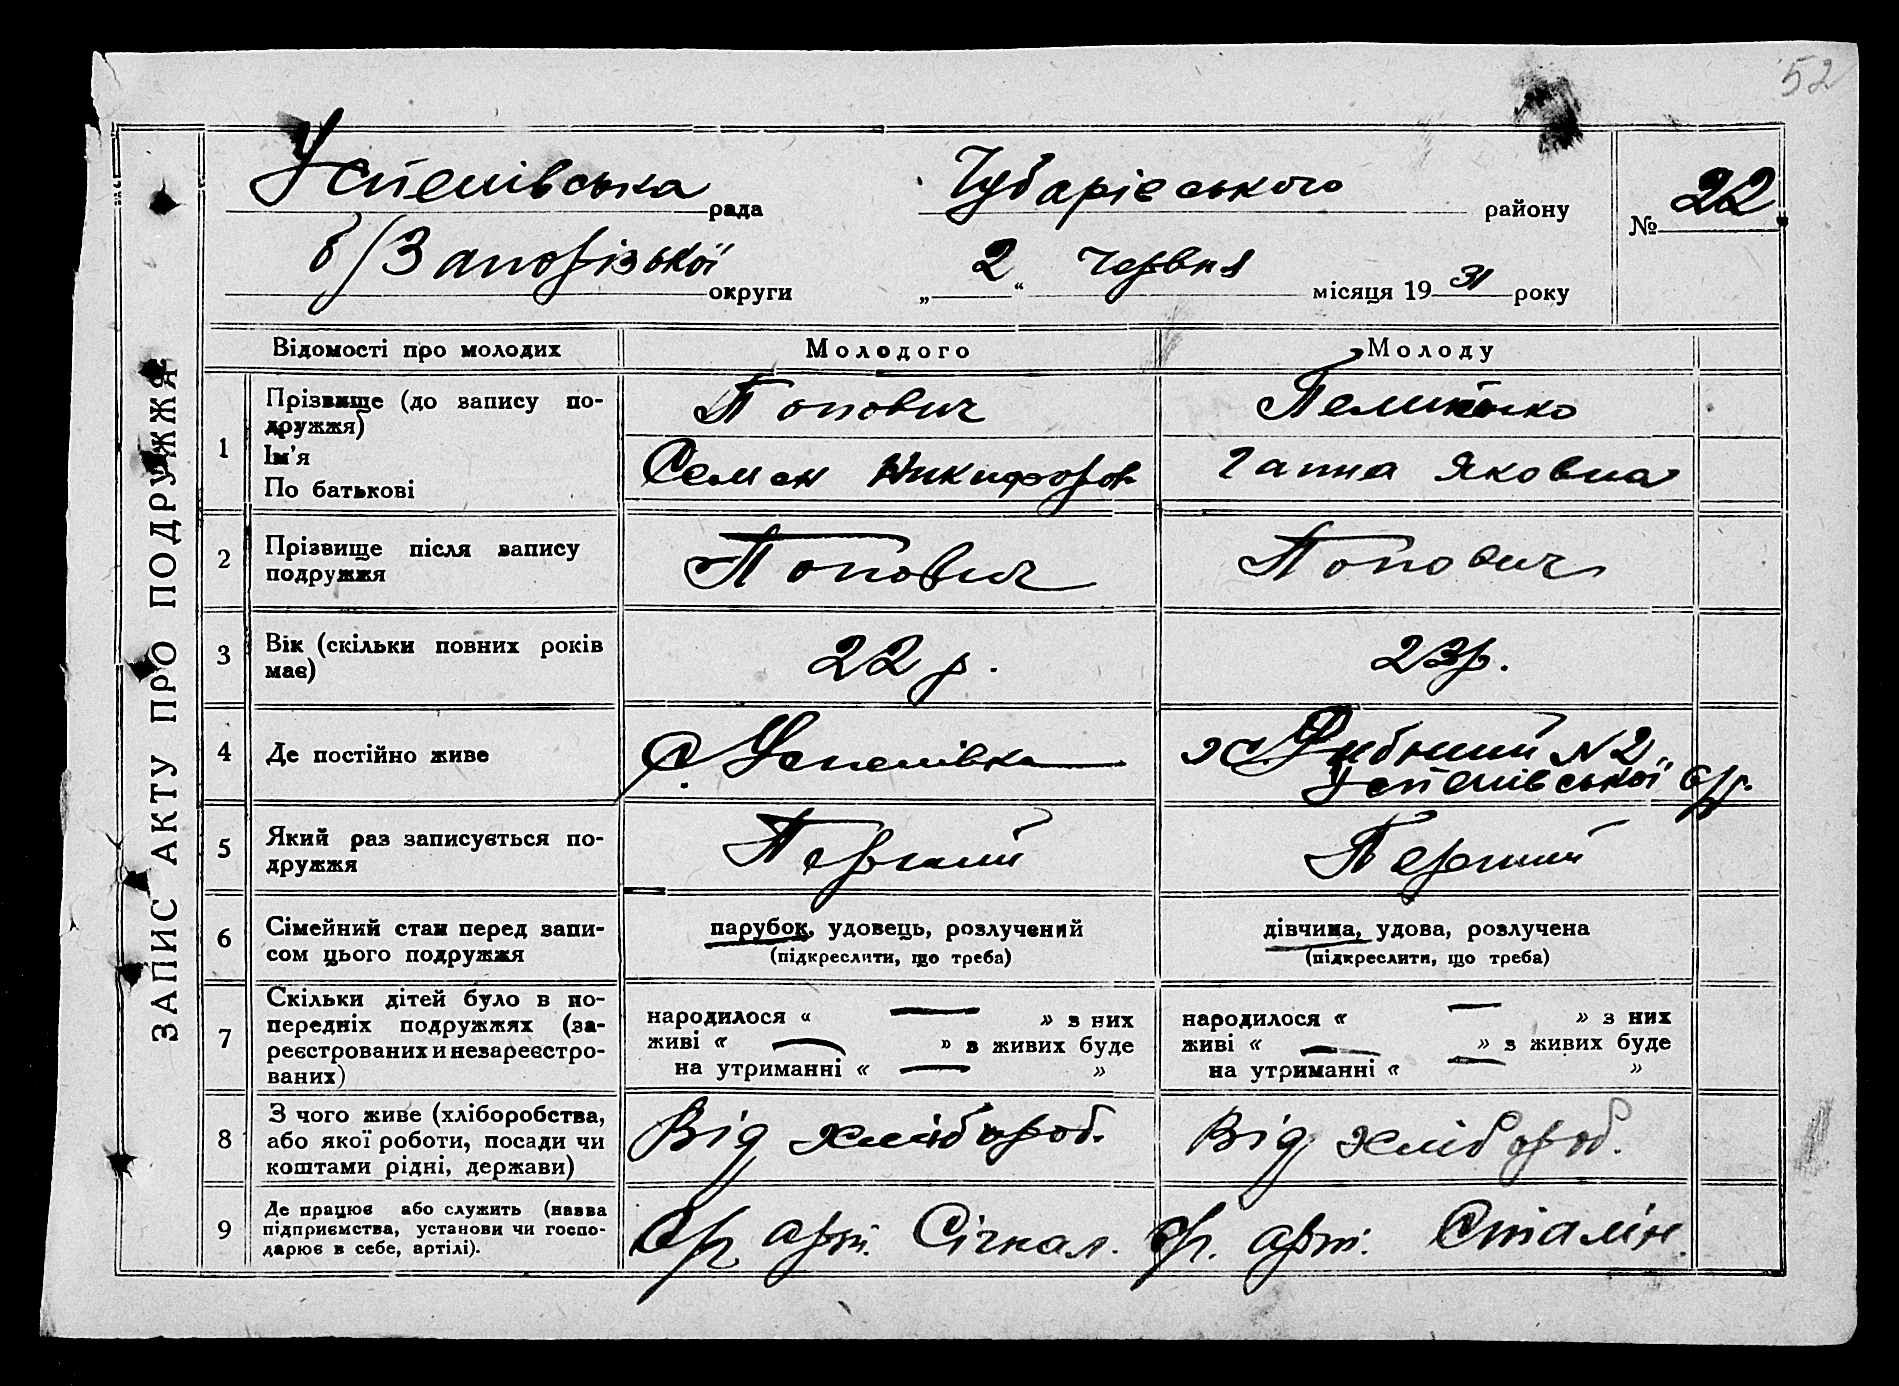 52
Успенівська рада Чубарівського району № 22
б/Запорізької округи „2“ червня місяця 1931 року
ЗАПИС АКТУ ПРО ПОДРУЖЖЯ
Відомості про молодих Молодого Молоду
1 Прізвище (до запису по-
дружжя)
Ім'я
По батькові
Попович
Семен Никифоров
Ганна Яковна
2 Прізвище після запису
подружжя
Попович
Попович
3 Вік (скільки повних років
має)
22 р.
23 р.
4 Де постійно живе
с. Успенівка
№ 2
Успенівської с/р.
5 Який раз записується по-
дружжя
Перший
Перший
6 Сімейний стан перед запи-
сом цього подружжя
парубок, удовець, розлучений
(підкреслити, що треба)
дівчина, удова, розлучена
(підкреслити, що треба)
7 Скільки дітей було в по-
передніх подружжях (за-
реєстрованих и незареєстро-
ваних)
народилося « — » з них
живі « — » в живих буде
на утриманні « — »
народилося « — » з них
живі « — » з живих буде
на утриманні « — »
8 З чого живе (хліборобства,
або якої роботи, посади чи
коштами рідні, держави)
Від хлібороб.
Від хлібороб.
9 Де працює або служить (назва
підприємства, установи чи госпо-
дарює в себе, артілі).
Ср. арт. Сігнал.
Ср. арт. Сталін.